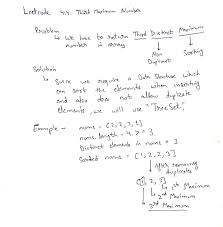 Leetcode 414. Third Maximum Number
Problem
↳ We have to return Third Distinct Maximum
number in array.
Non Duplicate
Sorting
Solution
↳ Since we require a Data Structure which
can sort the elements when inserting
and also does not allow duplicate
elements, we will use "TreeSet".
Example - nums = [2, 2, 3, 1]
nums.length = 4 > = 3
Distinct elements in nums = 3
Sorted nums = [1, 2, 2, 3]
After removing
duplicates
[1, 2, 3]
1st Maximum
2nd Maximum
3rd Maximum